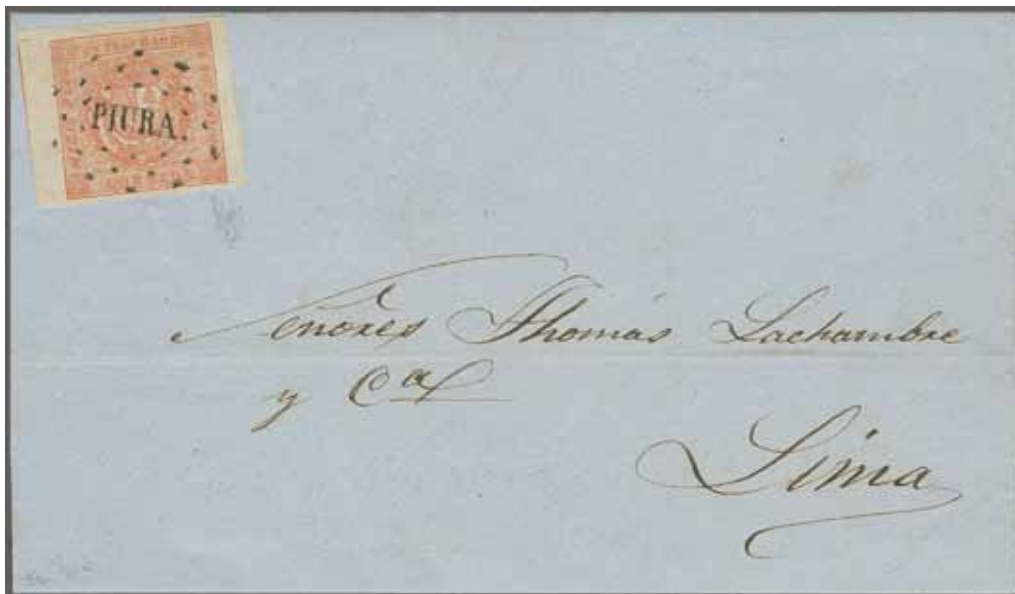 PIURA
Señores Thomás Lachambre
y Cª
Lima